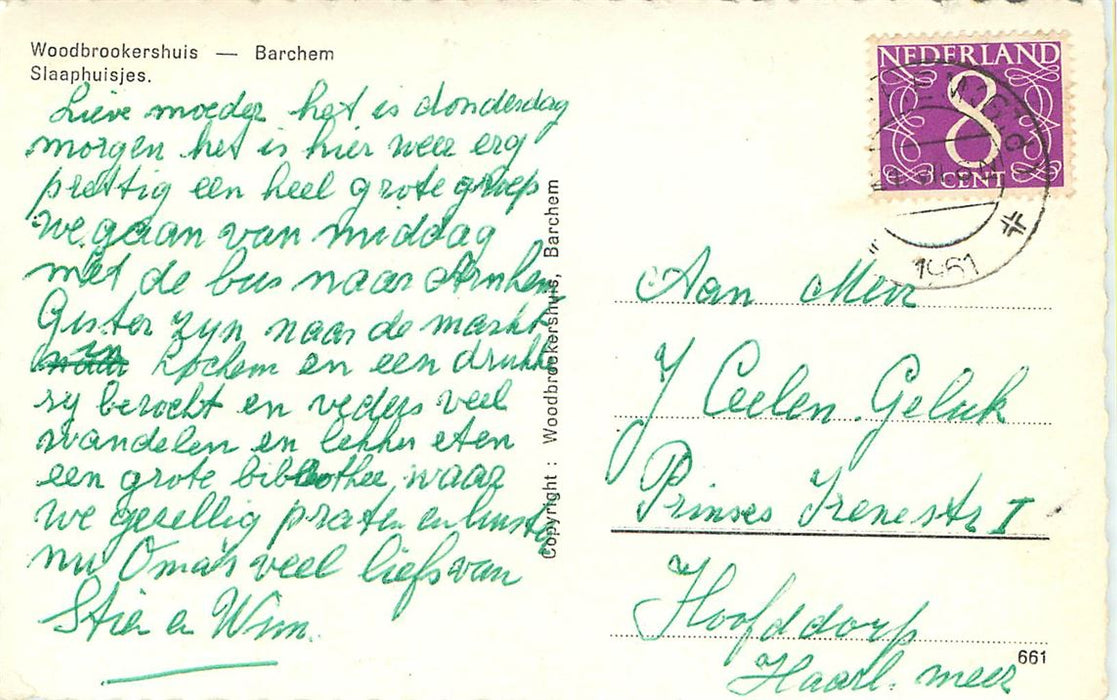 Woodbrookershuis — Barchem
Slaaphuisjes.
Lieve moeder het is donderdag
morgen het is hier weer erg
prettig een heel grote groep
we gaan van middag
met de bus naar Arnhem
Gister zyn naar de markt
in Lochem en een drukke
ry bezocht en veders veel
wandelen en lekker eten
een grote bibliothee, waar
we gezellig praten en
nu Oma's veel liefs van
Stien en Wim.
Copyright : Woodbrookershuis, Barchem
NEDERLAND
8
CENT
1961
Aan Mevr
J Ceelen. Geluk
Prinses Irenestr I
Hoofddorp
Haarl. meer
661